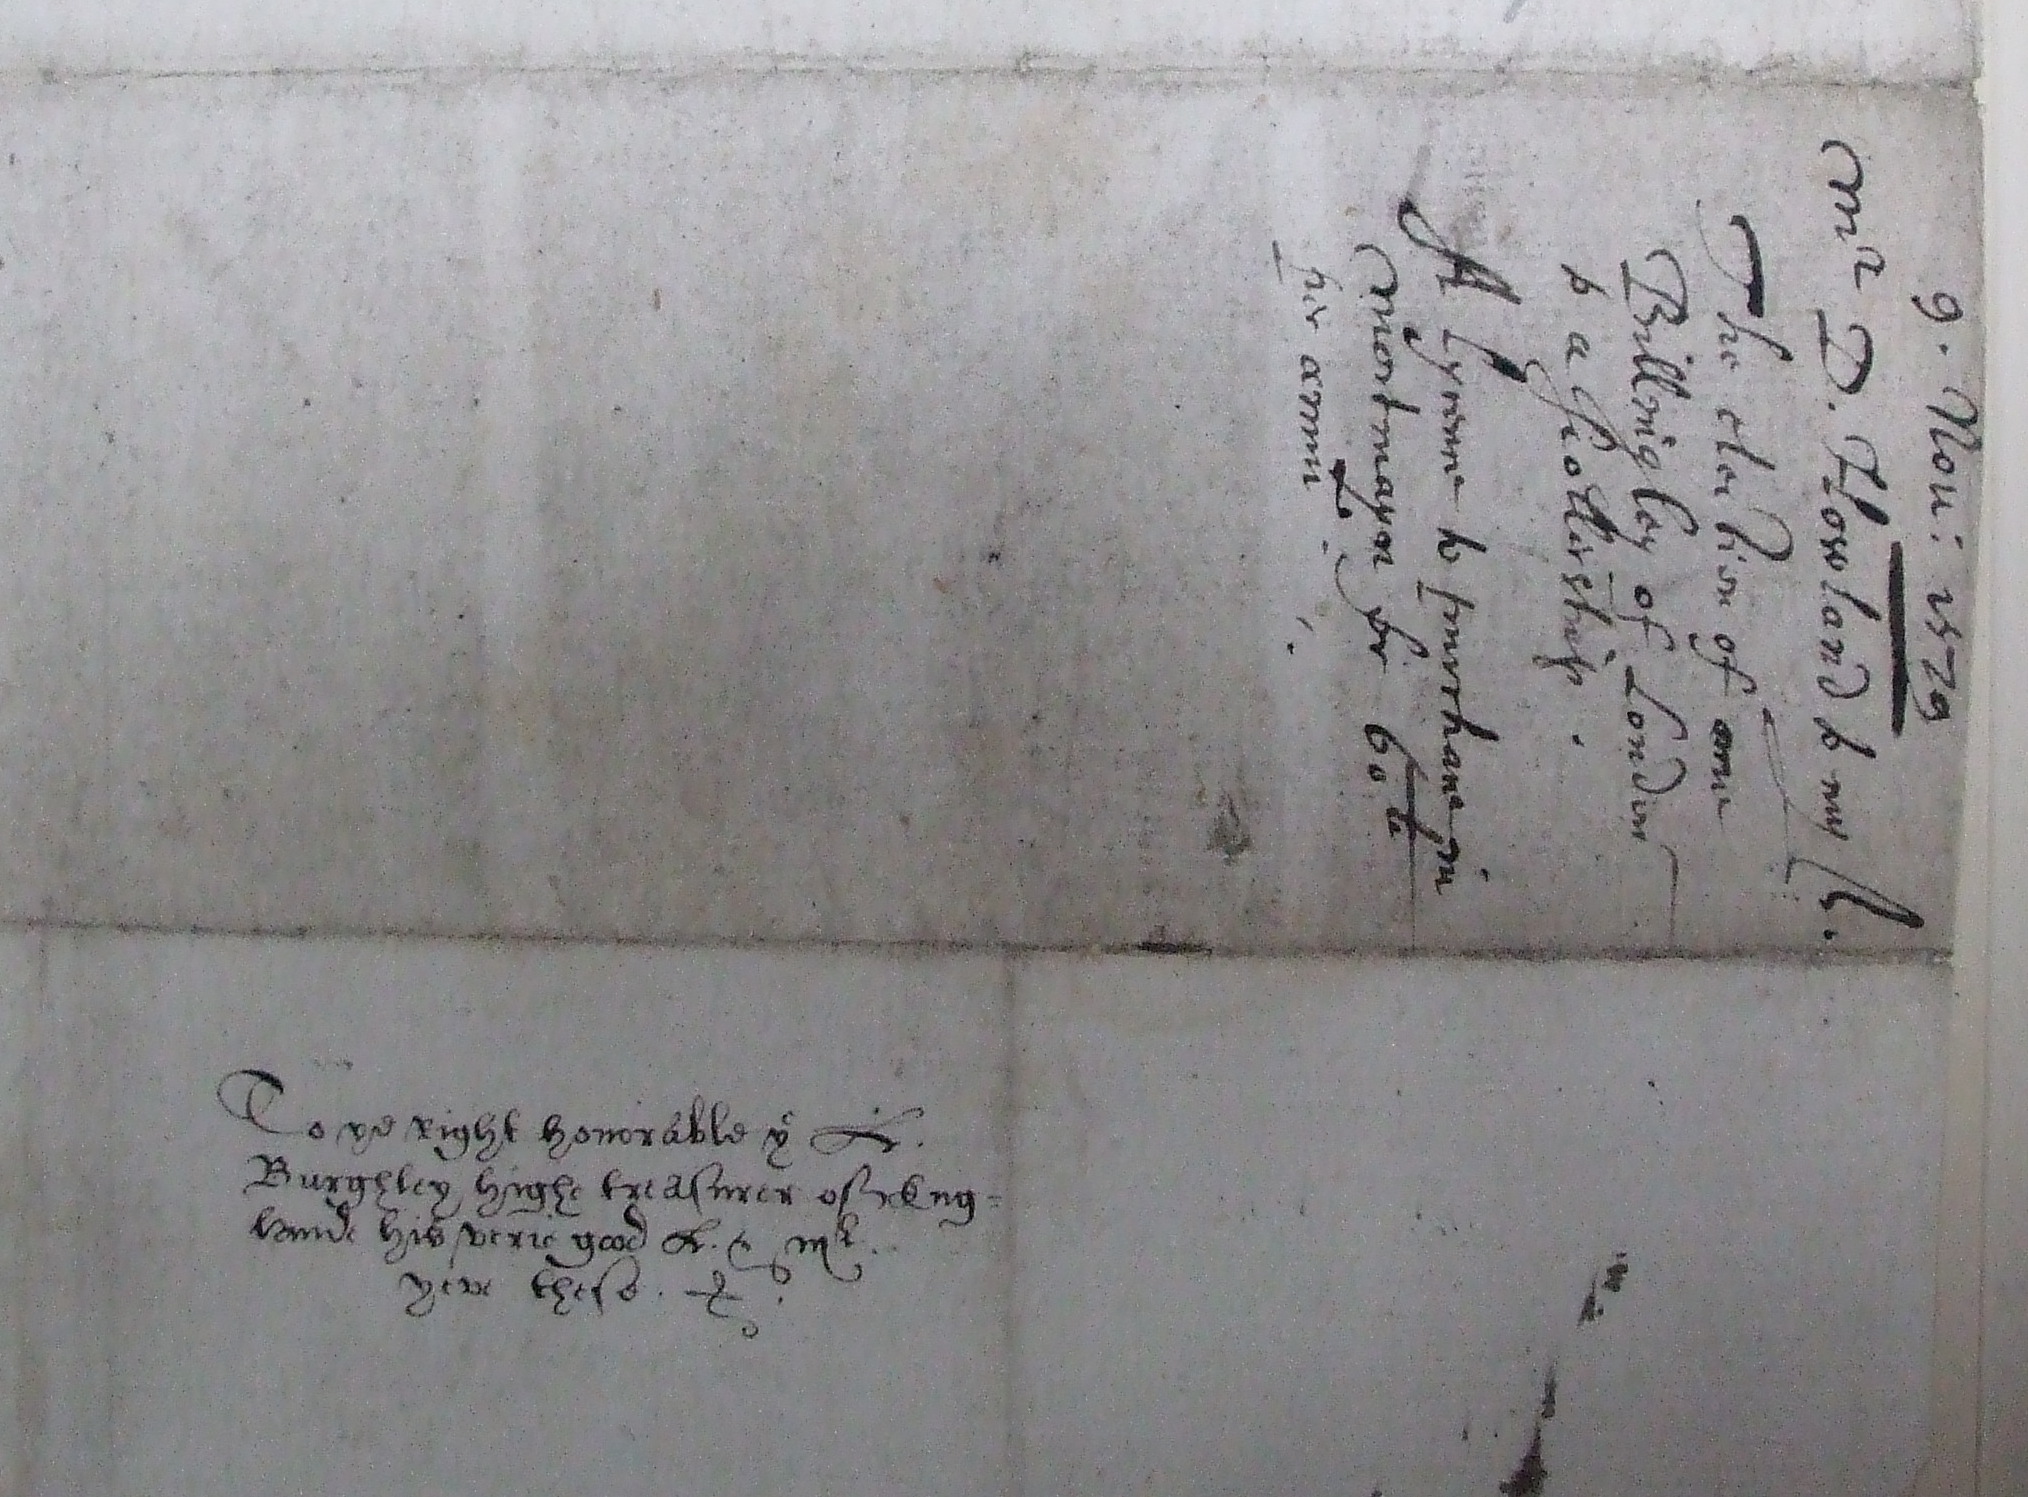 9. Nou: 1579
Mr D. Howland to my L.
The election of one
Billingsley of London
to a schollership.
A lycence to purchase in
Mortmayn for 60 li
per annu
To ye right honorable ye L.
Burghley highe treasurer of Eng=
lande his verie good L. & mr
yeve these.